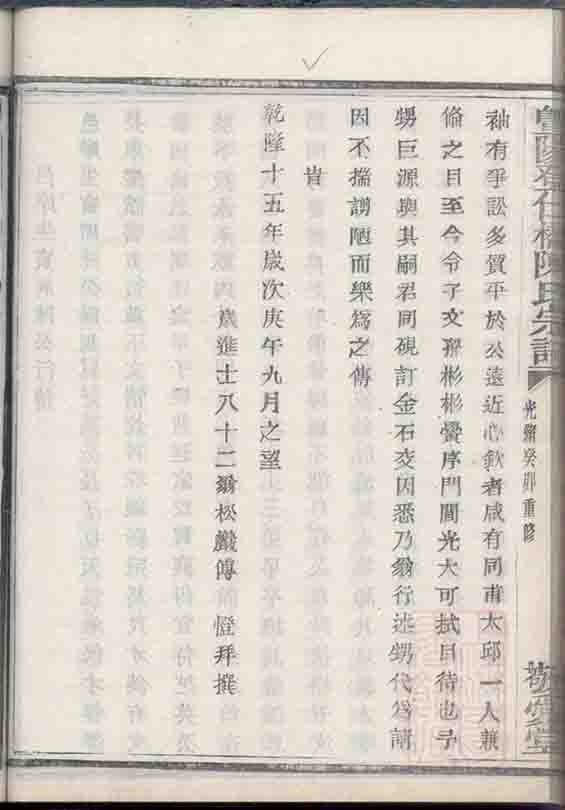 陳氏宗譜
光緒癸卯重修
衪有爭訟多質平於公遠近心欽者咸有同甫太邱一人兼
脩之目至今令子文孫彬彬黌序門閭光大可拭目待也予
甥巨源與其嗣君同硯訂金石交因悉乃翁行述甥代為請
因不揣謭陋而樂為之傳
旹
乾隆十五年歲次庚午九月之望
歲進士八十二翁松巖傅 愷拜撰